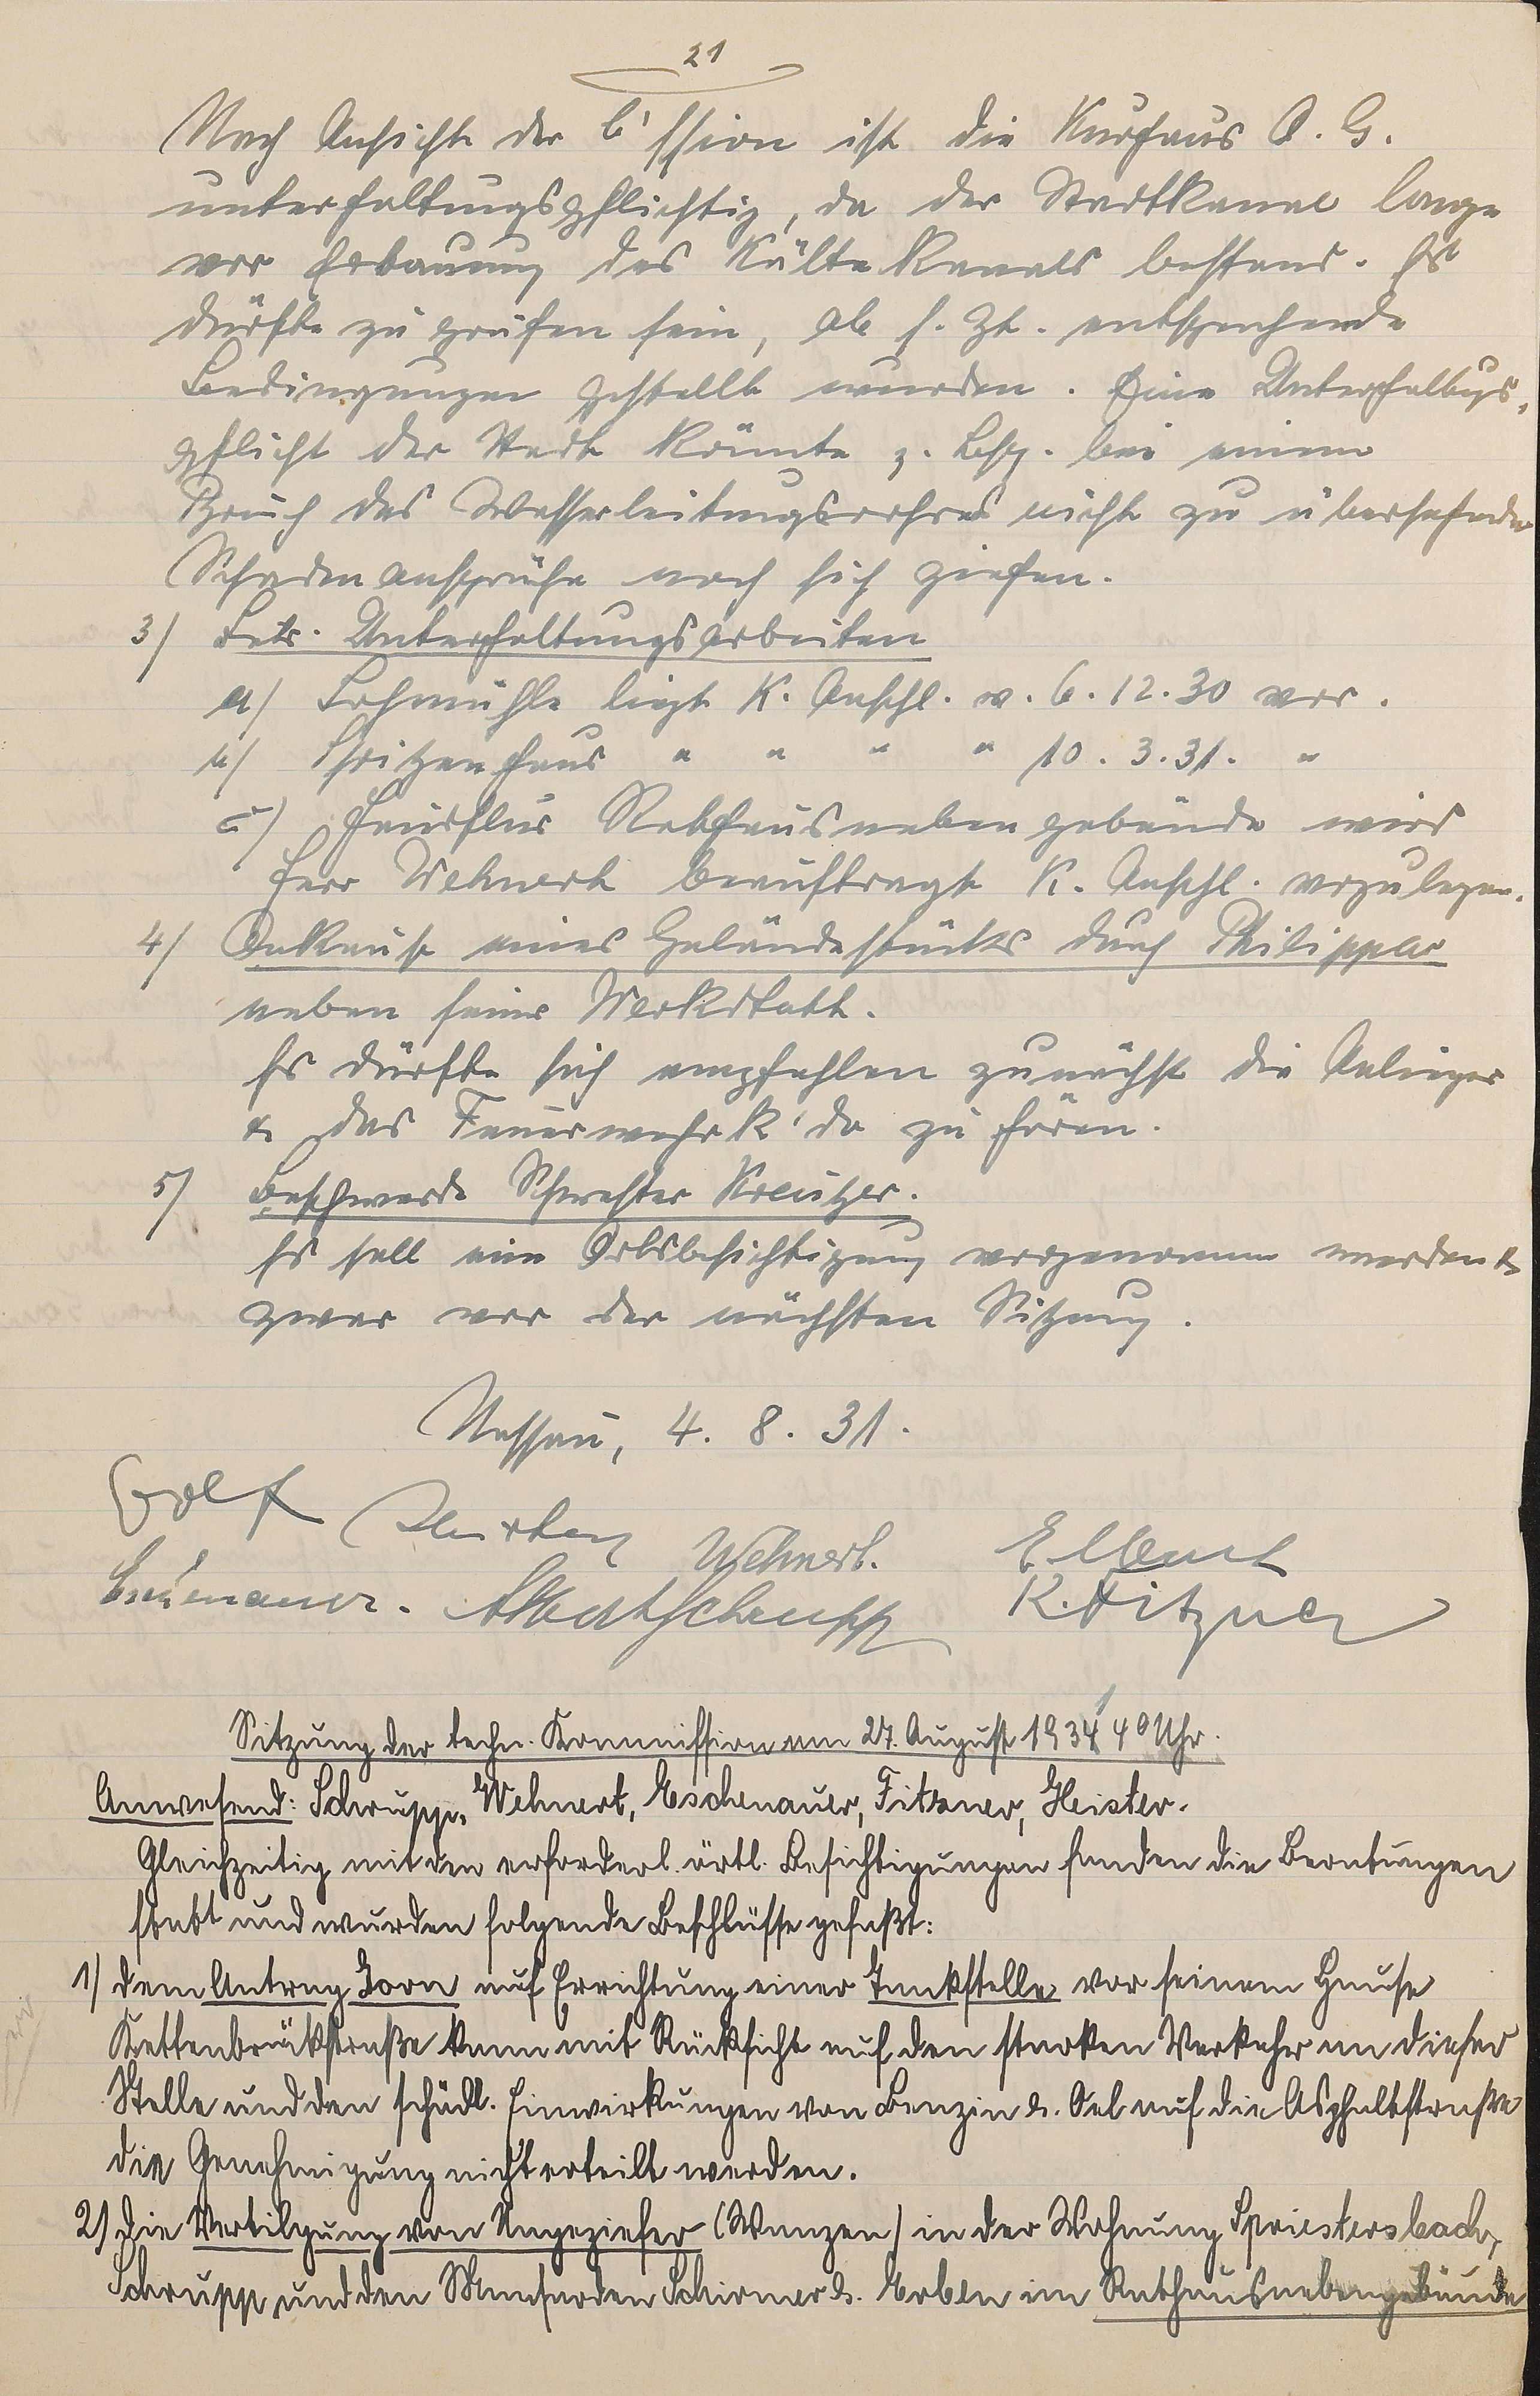 21
Nach Ansicht der C'ssion ist die Kurhaus A. G.
unterhaltungspflichtig, da der Stadtkanal lange
vor Erbauung des Kälte Kanals bestand. Es
dürfte zu prüfen sein, ob s. Zt. entsprechende
Bedingungen gestellt wurden. Eine Unterhaltgs.
pflicht der Stadt könnte z. Bsp. bei einem
Bruch des Wasserleitungsrohres nicht zu übersehende
Schadenansprüche nach sich ziehen.
3) Betr. Unterhaltungsarbeiten
a) Lohmühle liegt K. Anschl. v. 6.12.30 vor.
b) Spritzenhaus " " " " 10.3.31. "
c) Hausflur Rathausnebengebäude wird
Herr Wehnert beauftragt K. Anschl. vorzulegen.
4) Ankauf eines Geländestücks durch Philippar
neben seiner Werkstatt.
Es dürfte sich empfehlen zunächst die Anlieger
& das Feuerwehrk'do zu hören.
5) Beschwerde Schwester Kreutzer.
Es soll eine Ortsbesichtigung vorgenommen werden &
zwar vor der nächsten Sitzung.
Nassau, 4. 8. 31.
Wehnert.
Albert Schrupp K. Fitzner
Sitzung der techn. Kommission am 27. August 1931 4⁰ Uhr.
Anwesend: Schrupp, Wehnert, Eschenauer, Fitzner, Heister.
Gleichzeitig mit den erforderl. örtl. Besichtigungen fanden die Beratungen
statt und wurden folgende Beschlüsse gefaßt:
1) dem Antrag Zorn auf Errichtung einer Tankstelle vor seinem Hause
Kettenbrückstraße kann mit Rücksicht auf den starken Verkehr an dieser
Stelle und den schädl. Einwirkungen von Benzin u. Oel auf die Asphaltstraße
die Genehmigung nicht erteilt werden.
2) Die Vertilgung von Ungeziefer (Wanzen) in der Wohnung Spriestersbach,
Schrupp und den Mansarden Schirmer u. Erben im Rathausnebengebäude